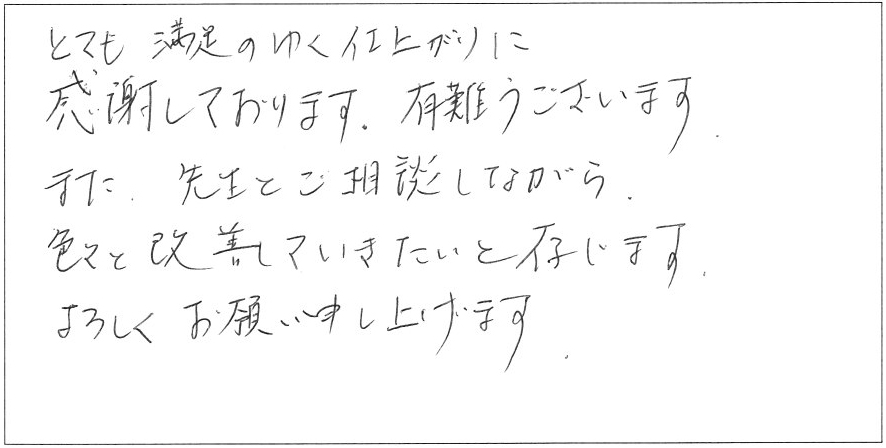 とても満足のゆく仕上がりに
感謝しております。有難うございます。
また、先生とご相談しながら、
色々と改善していきたいと存じます。
よろしくお願い申し上げます。